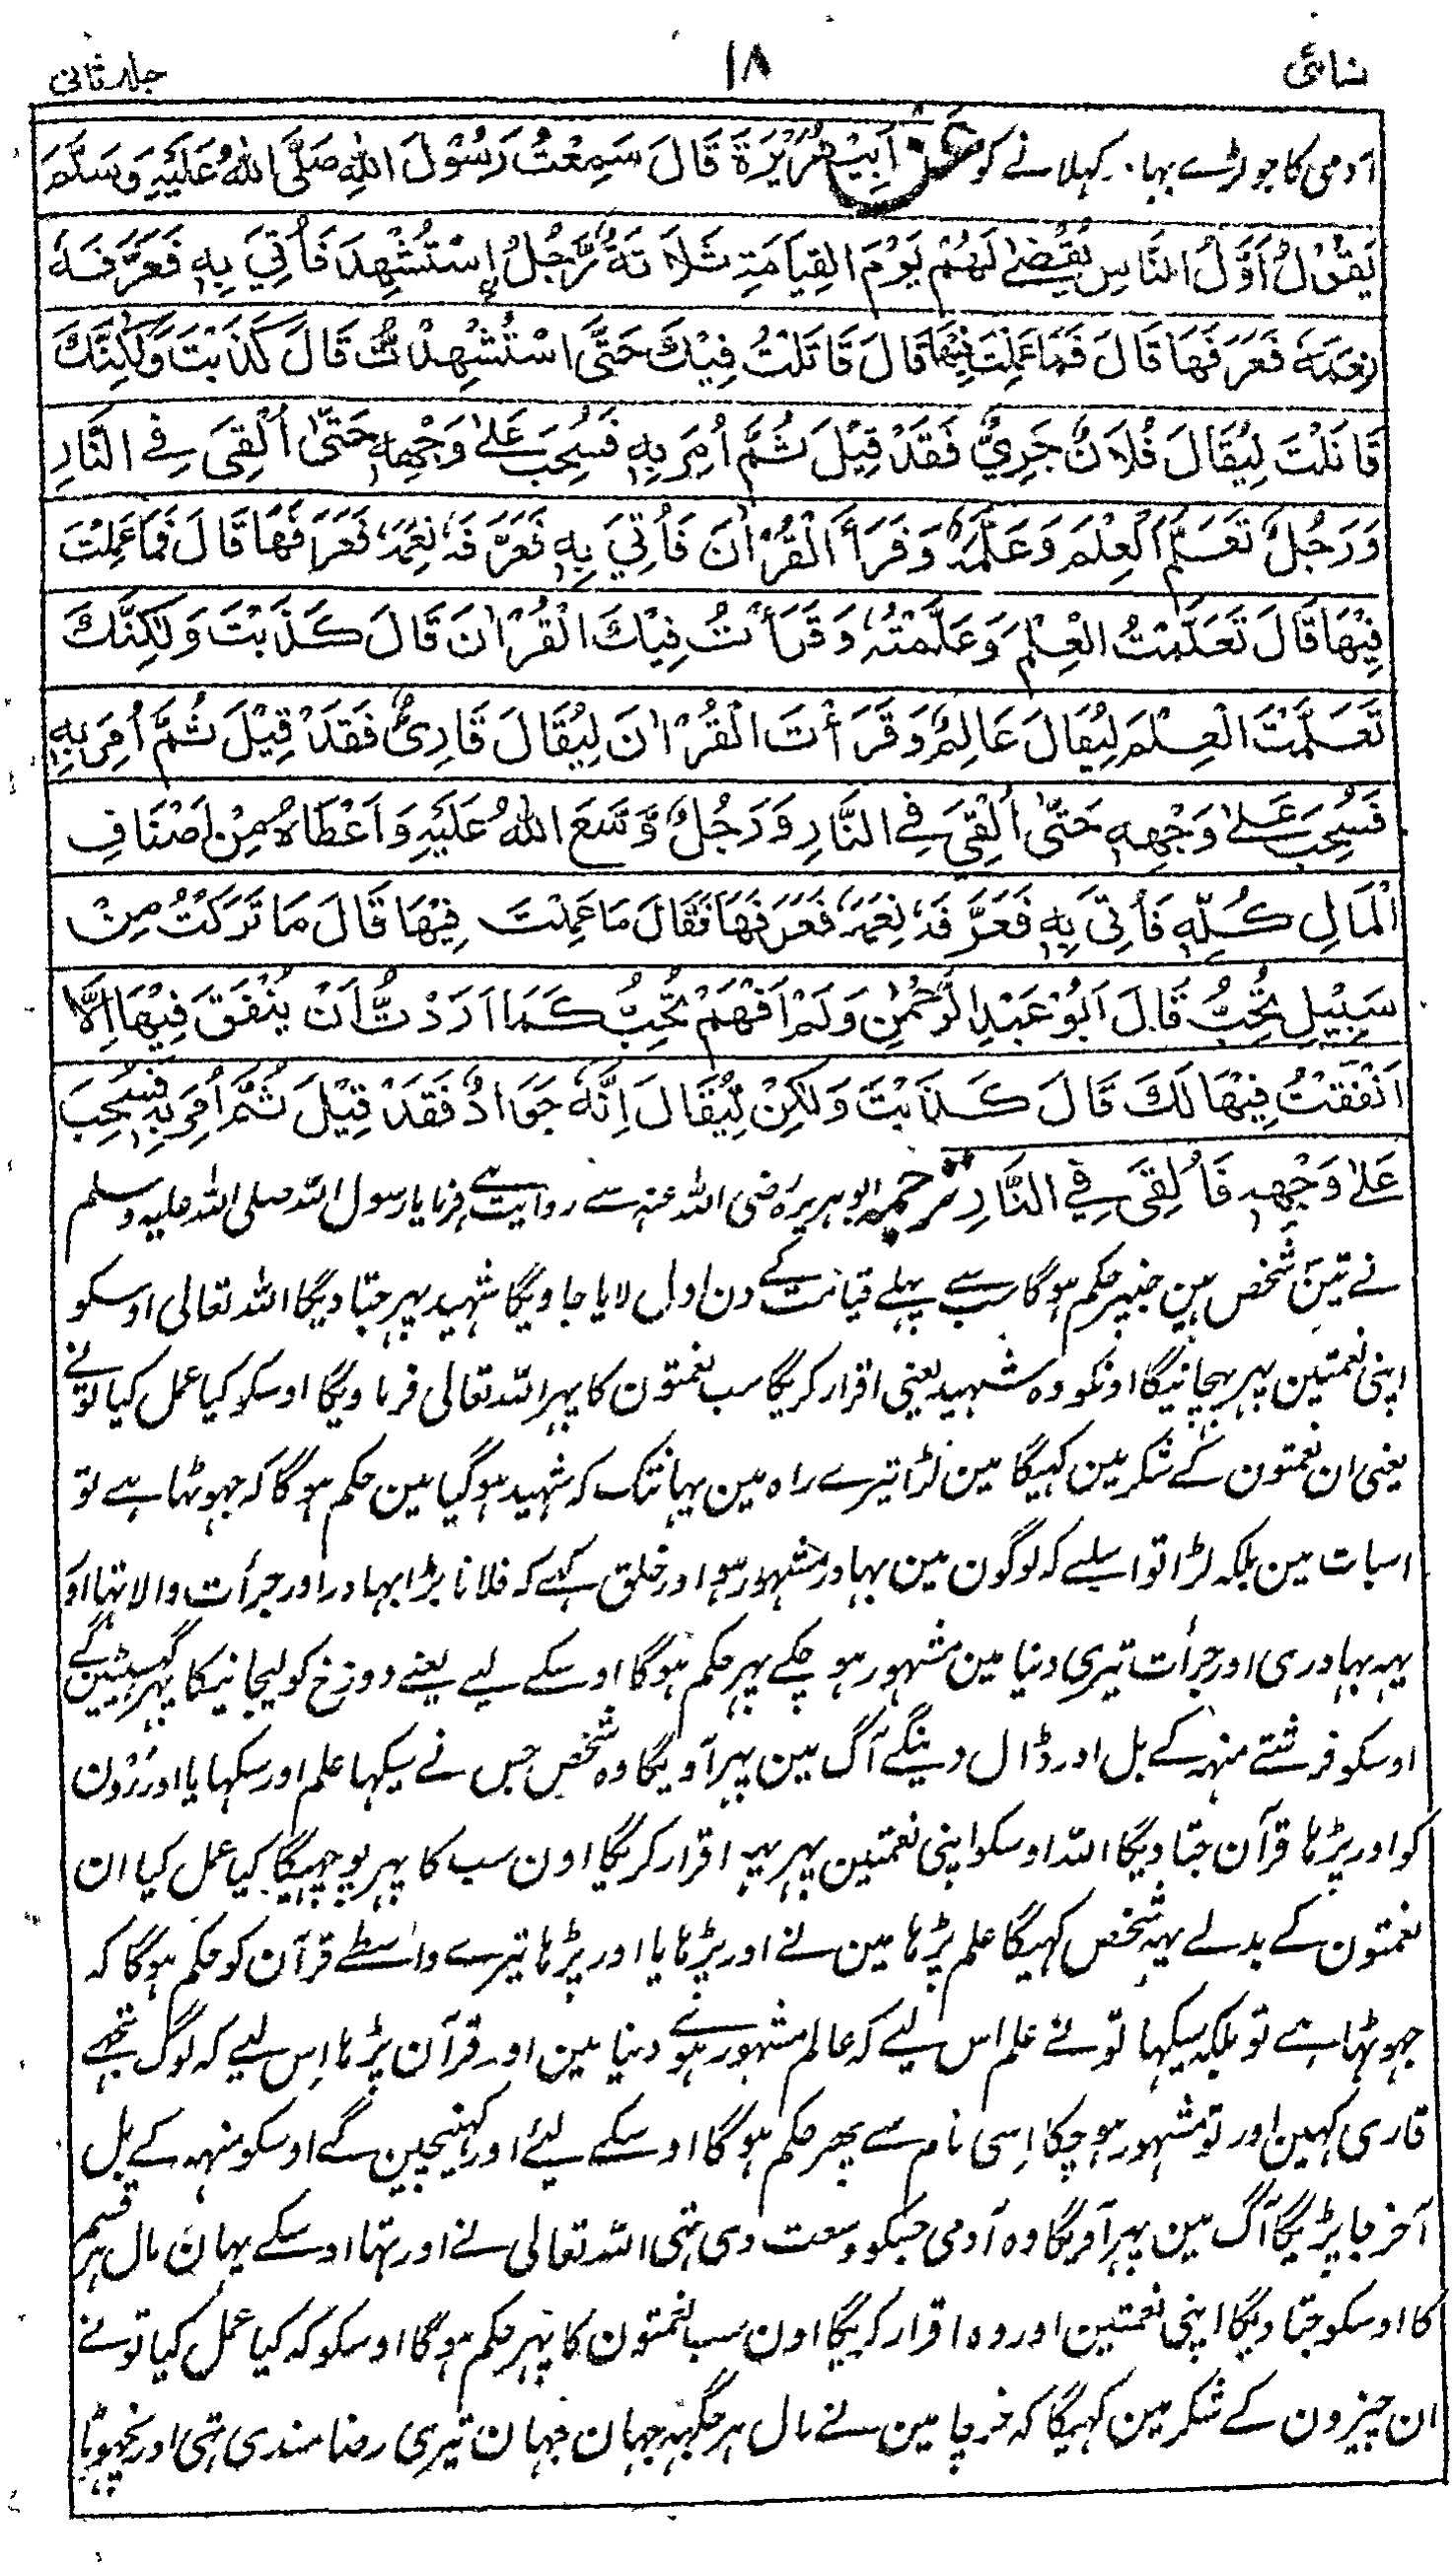 نسائی ۱۸ جلد ثانی
آدمی کا جو لڑے بہادر کہلانے کو عَنْ اَبِيْ هُرَيْرَةَ قَالَ سَمِعْتُ رَسُوْلَ اللهِ صَلَّى اللهُ عَلَيْهِ وَسَلَّمَ
يَقُوْلُ اَوَّلُ النَّاسِ يُقْضٰى لَهُمْ يَوْمَ الْقِيَامَةِ ثَلَاثَةٌ رَجُلٌ اِسْتُشْهِدَ فَاُتِيَ بِهٖ فَعَرَّفَهٗ
نِعَمَهٗ فَعَرَفَهَا قَالَ فَمَا عَمِلْتَ فِيْهَا قَالَ قَاتَلْتُ فِيْكَ حَتّٰى اسْتُشْهِدْتُّ قَالَ كَذَبْتَ وَلٰكِنَّكَ
قَاتَلْتَ لِيُقَالَ فُلَانٌ جَرِيٌّ فَقَدْ قِيْلَ ثُمَّ اُمِرَ بِهٖ فَسُحِبَ عَلٰى وَجْهِهٖ حَتّٰى اُلْقِيَ فِي النَّارِ
وَرَجُلٌ تَعَلَّمَ الْعِلْمَ وَعَلَّمَهٗ وَقَرَأَ الْقُرْاٰنَ فَاُتِيَ بِهٖ فَعَرَّفَهٗ نِعَمَهٗ فَعَرَفَهَا قَالَ فَمَا عَمِلْتَ
فِيْهَا قَالَ تَعَلَّمْتُ الْعِلْمَ وَعَلَّمْتُهٗ وَقَرَأْتُ فِيْكَ الْقُرْاٰنَ قَالَ كَذَبْتَ وَلٰكِنَّكَ
تَعَلَّمْتَ الْعِلْمَ لِيُقَالَ عَالِمٌ وَقَرَأْتَ الْقُرْاٰنَ لِيُقَالَ قَارِئٌ فَقَدْ قِيْلَ ثُمَّ اُمِرَ بِهٖ
فَسُحِبَ عَلٰى وَجْهِهٖ حَتّٰى اُلْقِيَ فِي النَّارِ وَرَجُلٌ وَّسَّعَ اللهُ عَلَيْهِ وَاَعْطَاهُ مِنْ اَصْنَافِ
الْمَالِ كُلِّهٖ فَاُتِيَ بِهٖ فَعَرَّفَهٗ نِعَمَهٗ فَعَرَفَهَا فَقَالَ مَا عَمِلْتَ فِيْهَا قَالَ مَا تَرَكْتُ مِنْ
سَبِيْلٍ تُحِبُّ قَالَ اَبُوْ عَبْدِ الرَّحْمٰنِ وَلَمْ اَفْهَمْ تُحِبُّ كَمَا اَرَدْتُّ اَنْ يُنْفَقَ فِيْهَا اِلَّا
اَنْفَقْتُ فِيْهَا لَكَ قَالَ كَذَبْتَ وَلٰكِنْ لِيُقَالَ اِنَّهٗ جَوَادٌ فَقَدْ قِيْلَ ثُمَّ اُمِرَ بِهٖ فَسُحِبَ
عَلٰى وَجْهِهٖ فَاُلْقِيَ فِي النَّارِ ترجمہ ابوہریرہ رضی اللہ عنہ سے روایت ہے فرمایا رسول اللہ صلی اللہ علیہ وسلم
نے تین شخص ہین جنپر حکم ہوگا سب سے پہلے قیامت کے دن اول لایا جاویگا شہید پہر جتا دیگا اللہ تعالی اوسکو
اپنی نعمتین پہر پہچانیگا اونکو وہ شہید یعنی اقرار کریگا سب نعمتون کا پہر اللہ تعالی فرماویگا اوسکو کیا عمل کیا تونے
یعنی ان نعمتون کے شکر مین کہیگا مین لڑا تیرے راہ مین یہانتک کہ شہید ہوگیا مین حکم ہوگا کہ جہوٹہا ہے تو
اسبات مین بلکہ لڑا تو اسلیے کہ لوگون مین بہادر مشہور ہو اور خلق کہے کہ فلانا بڑا بہادر اور جرأت والا تہا اور
یہہ بہادری اور جرأت تیری دنیا مین مشہور ہو چکے پہر حکم ہوگا اوسکے لیے یعنے دوزخ کو لیجانیکا پہر گہسیٹین گے
اوسکو فرشتے منہہ کے بل اور ڈال دینگے آگ مین پہر آویگا وہ شخص جس نے سیکہا علم اور سکہایا اورون
کو اور پڑہا قرآن جتا دیگا اللہ اوسکو اپنی نعمتین پہر یہہ اقرار کریگا اون سب کا پہر پوچہیگا کیا عمل کیا ان
نعمتون کے بدلے یہہ شخص کہیگا علم پڑہا مین نے اور پڑہایا اور پڑہا تیرے واسطے قرآن کو حکم ہوگا کہ
جہوٹہا ہے تو بلکہ سیکہا تونے علم اس لیے کہ عالم مشہور ہووے دنیا مین اور قرآن پڑہا اِس لیے کہ لوگ تجہے
قاری کہین اور تو مشہور ہو چکا اِسی نام سے پھر حکم ہوگا اوسکے لیئے اور کہینچین گے اوسکو منہہ کے بل
آخر جا پڑیگا آگ مین پہر آویگا وہ آدمی جسکو وسعت دی تہی اللہ تعالی نے اور تہا اوسکے یہان مال ہر قسم
کا اوسکو جتا دیگا اپنی نعمتین اور وہ اقرار کریگا اون سب نعمتون کا پہر حکم ہوگا اوسکو کہ کیا عمل کیا تونے
ان چیزون کے شکر مین کہیگا کہ خرچا مین نے مال ہر جگہہ جہان جہان تیری رضامندی تہی اور نچہوڑا